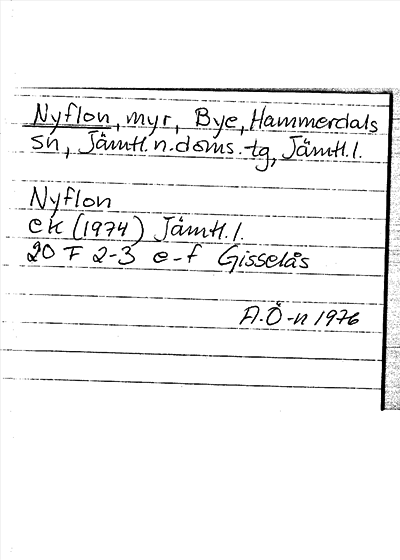 Nyflon, myr, Bye, Hammerdals
sn, Jämtl. n. doms. tg, Jämtl. l.
Nyflon
ek (1974) Jämtl. l.
20 F 2-3 e-f Gisselås
A.Ö-n 1976